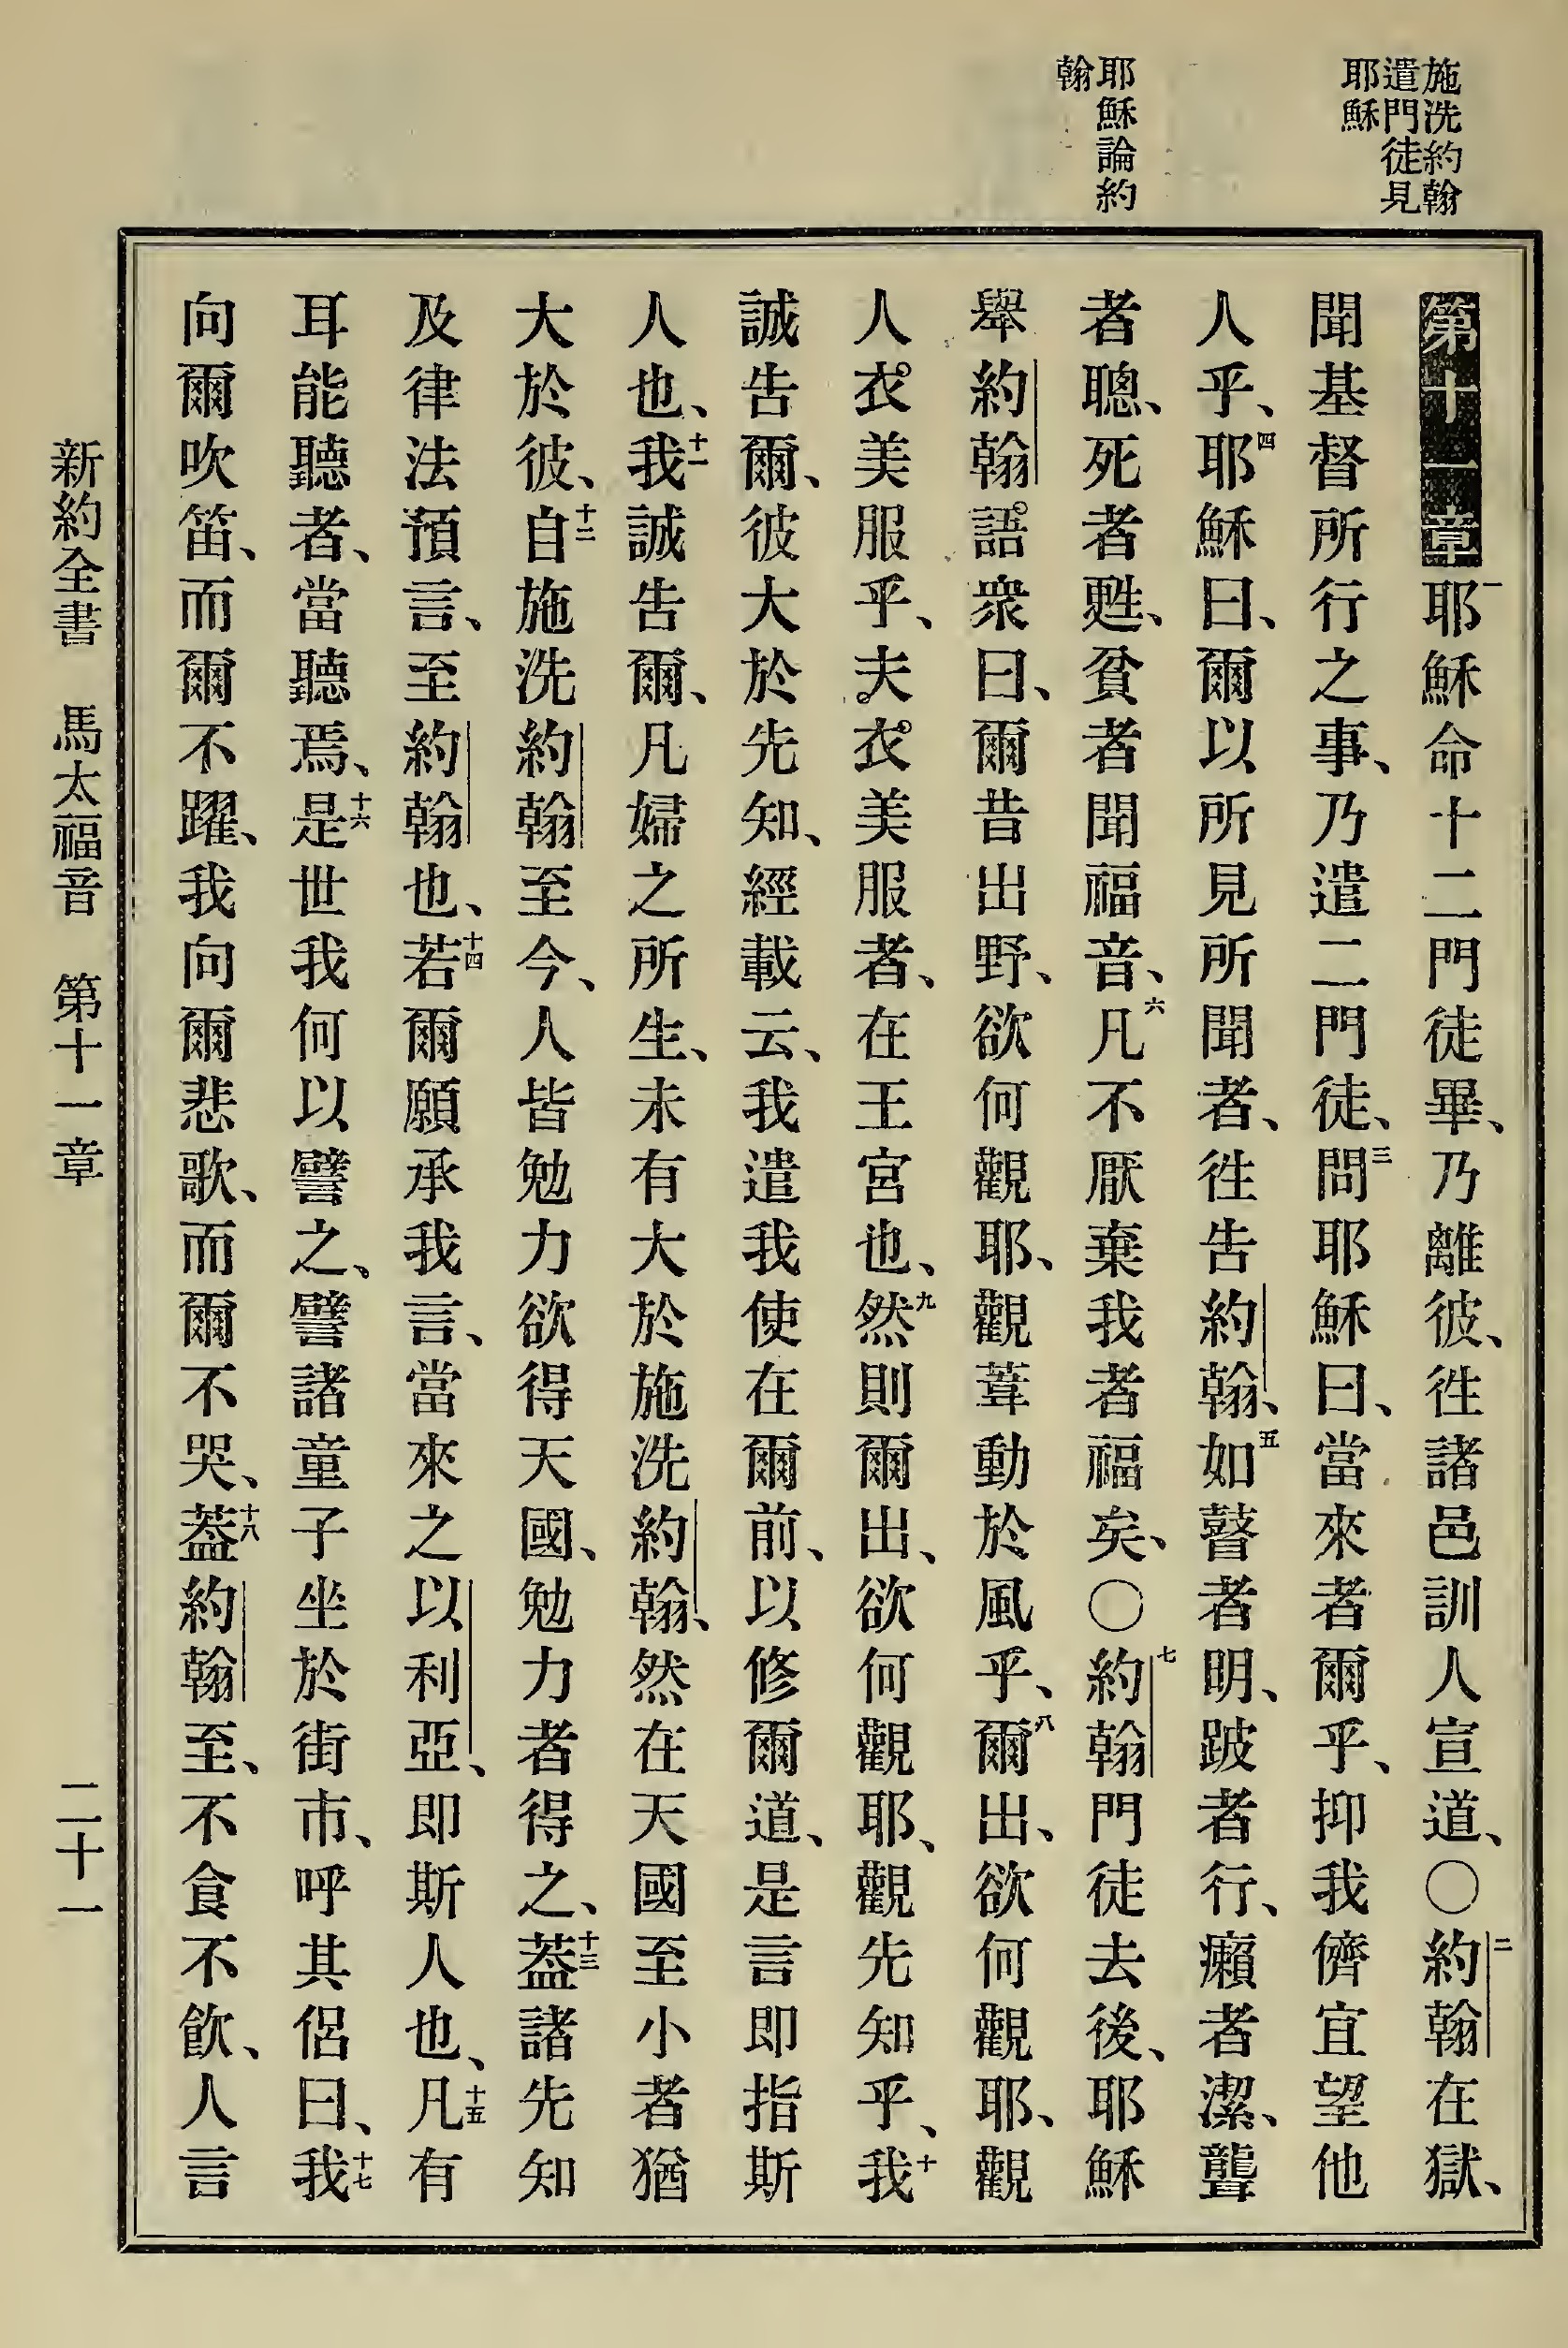 施洗約翰
遣門徒見
耶穌
耶穌論約
翰
第十一章 一耶穌命十二門徒畢、乃離彼、徃諸邑訓人宣道、〇二約翰在獄、
聞基督所行之事、乃遣二門徒、三問耶穌曰、當來者爾乎、抑我儕宜望他
人乎、四耶穌曰、爾以所見所聞者、徃告約翰、五如瞽者明、跛者行、癩者潔、聾
者聰、死者甦、貧者聞福音、六凡不厭棄我者福矣、〇七約翰門徒去後、耶穌
舉約翰語衆曰、爾昔出野、欲何觀耶、觀葦動於風乎、八爾出、欲何觀耶、觀
人衣美服乎、夫衣美服者、在王宮也、九然則爾出、欲何觀耶、觀先知乎、十我
誠告爾、彼大於先知、經載云、我遣我使在爾前、以修爾道、是言即指斯
人也、十一我誠告爾、凡婦之所生、未有大於施洗約翰、然在天國至小者猶
大於彼、十二自施洗約翰至今、人皆勉力欲得天國、勉力者得之、十三蓋諸先知
及律法預言、至約翰也、十四若爾願承我言、當來之以利亞、即斯人也、十五凡有
耳能聽者、當聽焉、十六是世我何以譬之、譬諸童子坐於街市、呼其侶曰、十七我
向爾吹笛、而爾不躍、我向爾悲歌、而爾不哭、十八蓋約翰至、不食不飲、人言
新約全書 馬太福音 第十一章 二十一